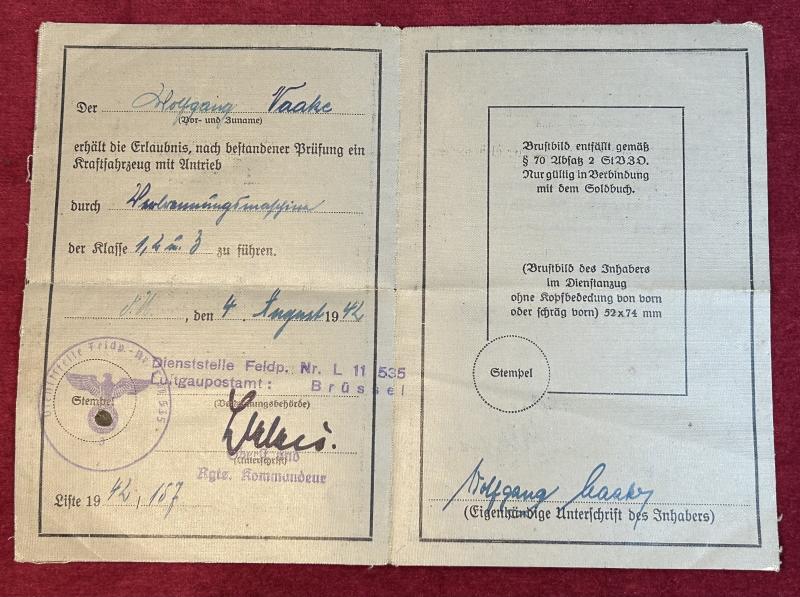 Der Wolfgang Vaake
(Vor- und Zuname)
erhält die Erlaubnis, nach bestandener Prüfung ein
Kraftfahrzeug mit Antrieb
durch Verbrennungsmaschine
der Klasse 1, 2 u. 3 zu führen.
, den 4. August 1942
Dienststelle Feldp. Nr. L 11 535
Luftgaupostamt: Brüssel
Dienststelle Feldp.-Nr.
Stempel
(Unterschrift)
Oberst und
Rgts. Kommandeur
Liste 1942, 157
Brustbild entfällt gemäß
§ 70 Absatz 2 StVZO.
Nur gültig in Verbindung
mit dem Soldbuch.
(Brustbild des Inhabers
im Dienstanzug
ohne Kopfbedeckung von vorn
oder schräg vorn) 52x74 mm
Stempel
Wolfgang Vaake
(Eigenhändige Unterschrift des Inhabers)